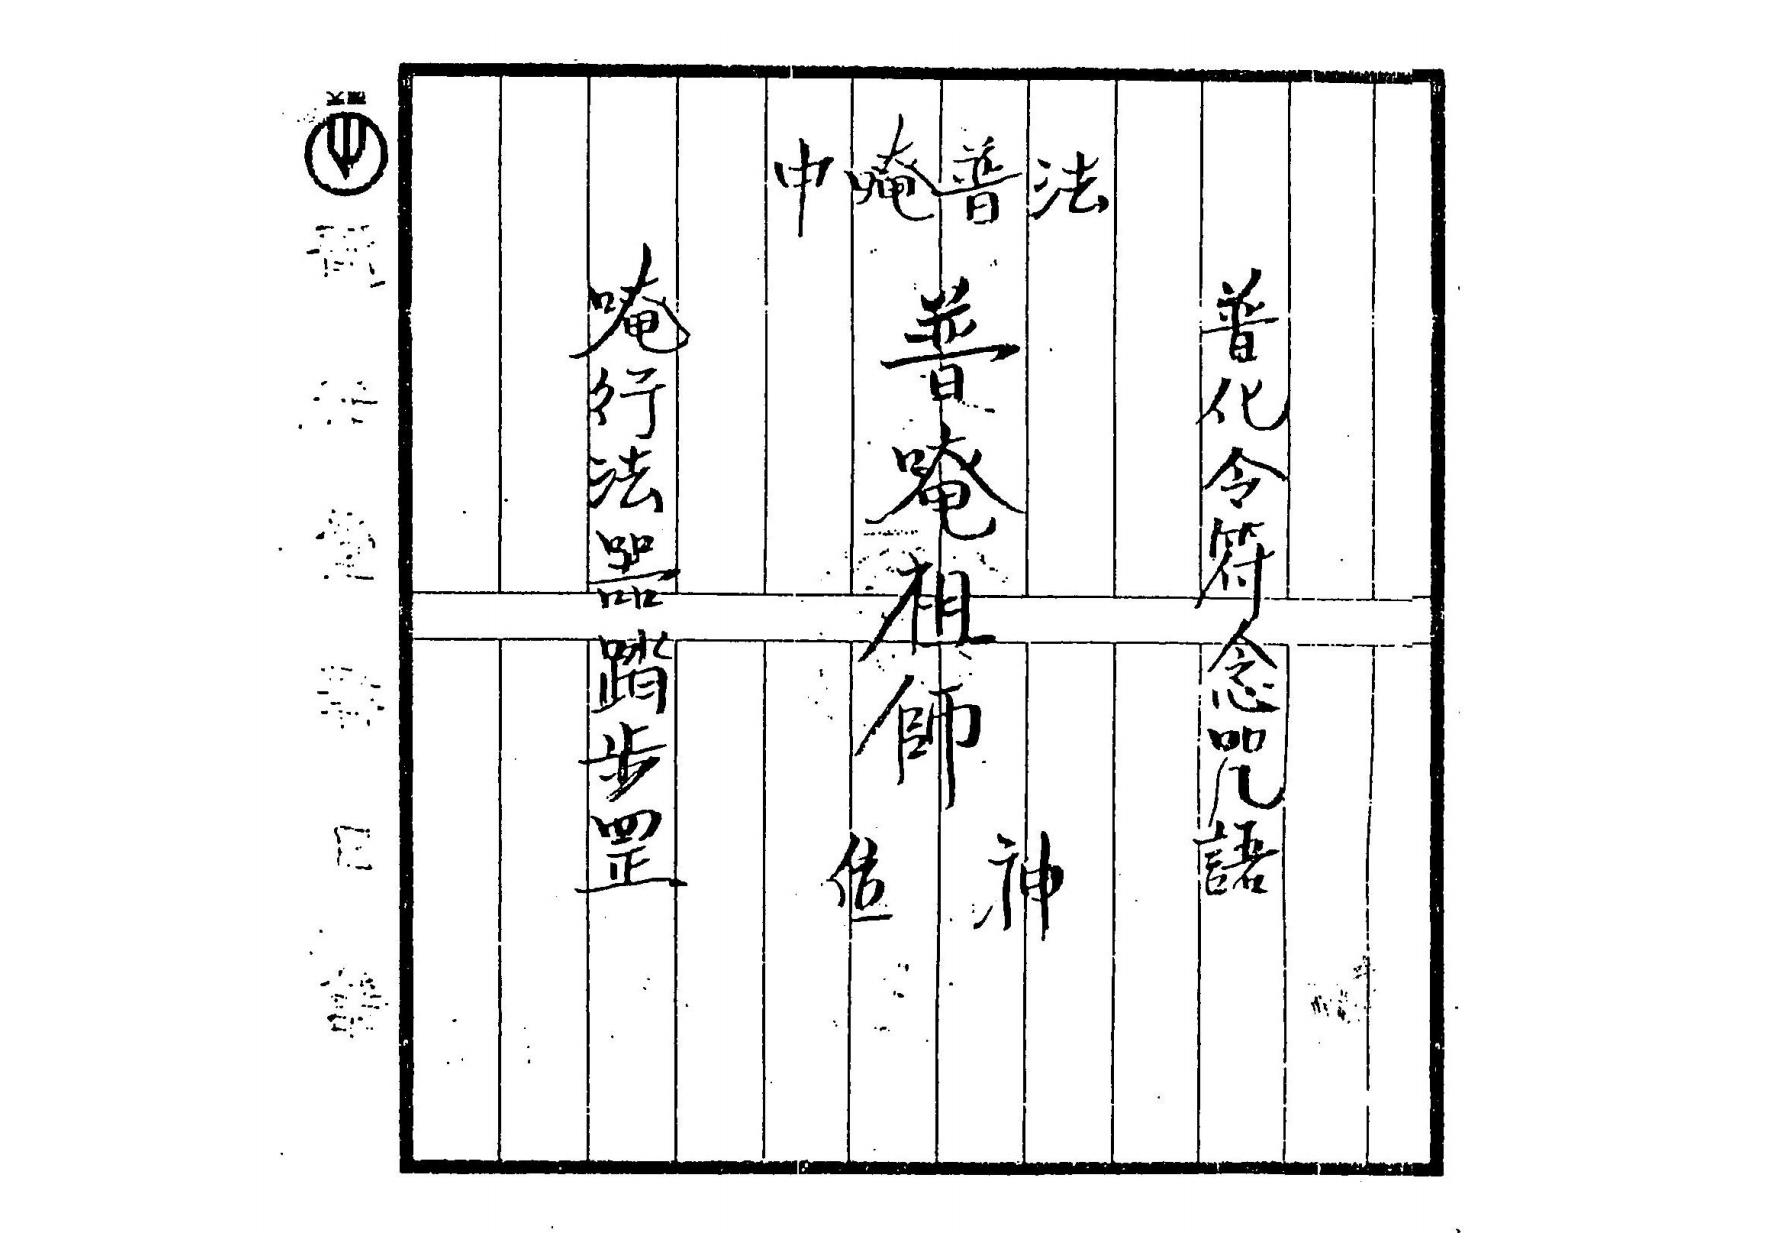 法普唵申
普化令符念咒語
普唵祖師
神位
唵行法器踏步罡